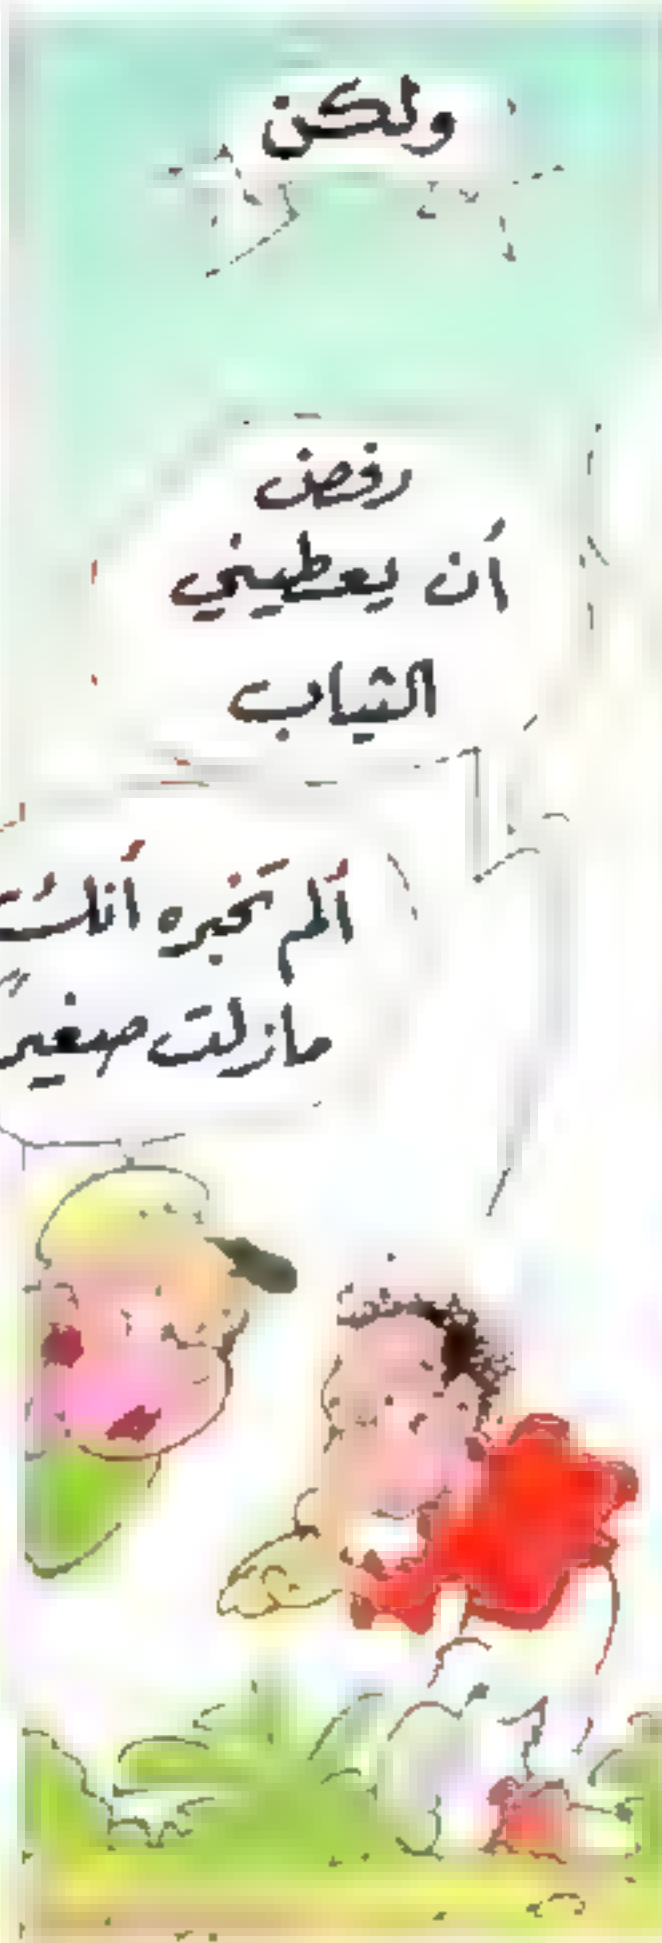 ولكن
رفض
أن يعطيني
الثياب
ألم تخبره أنك
مازلت صغير